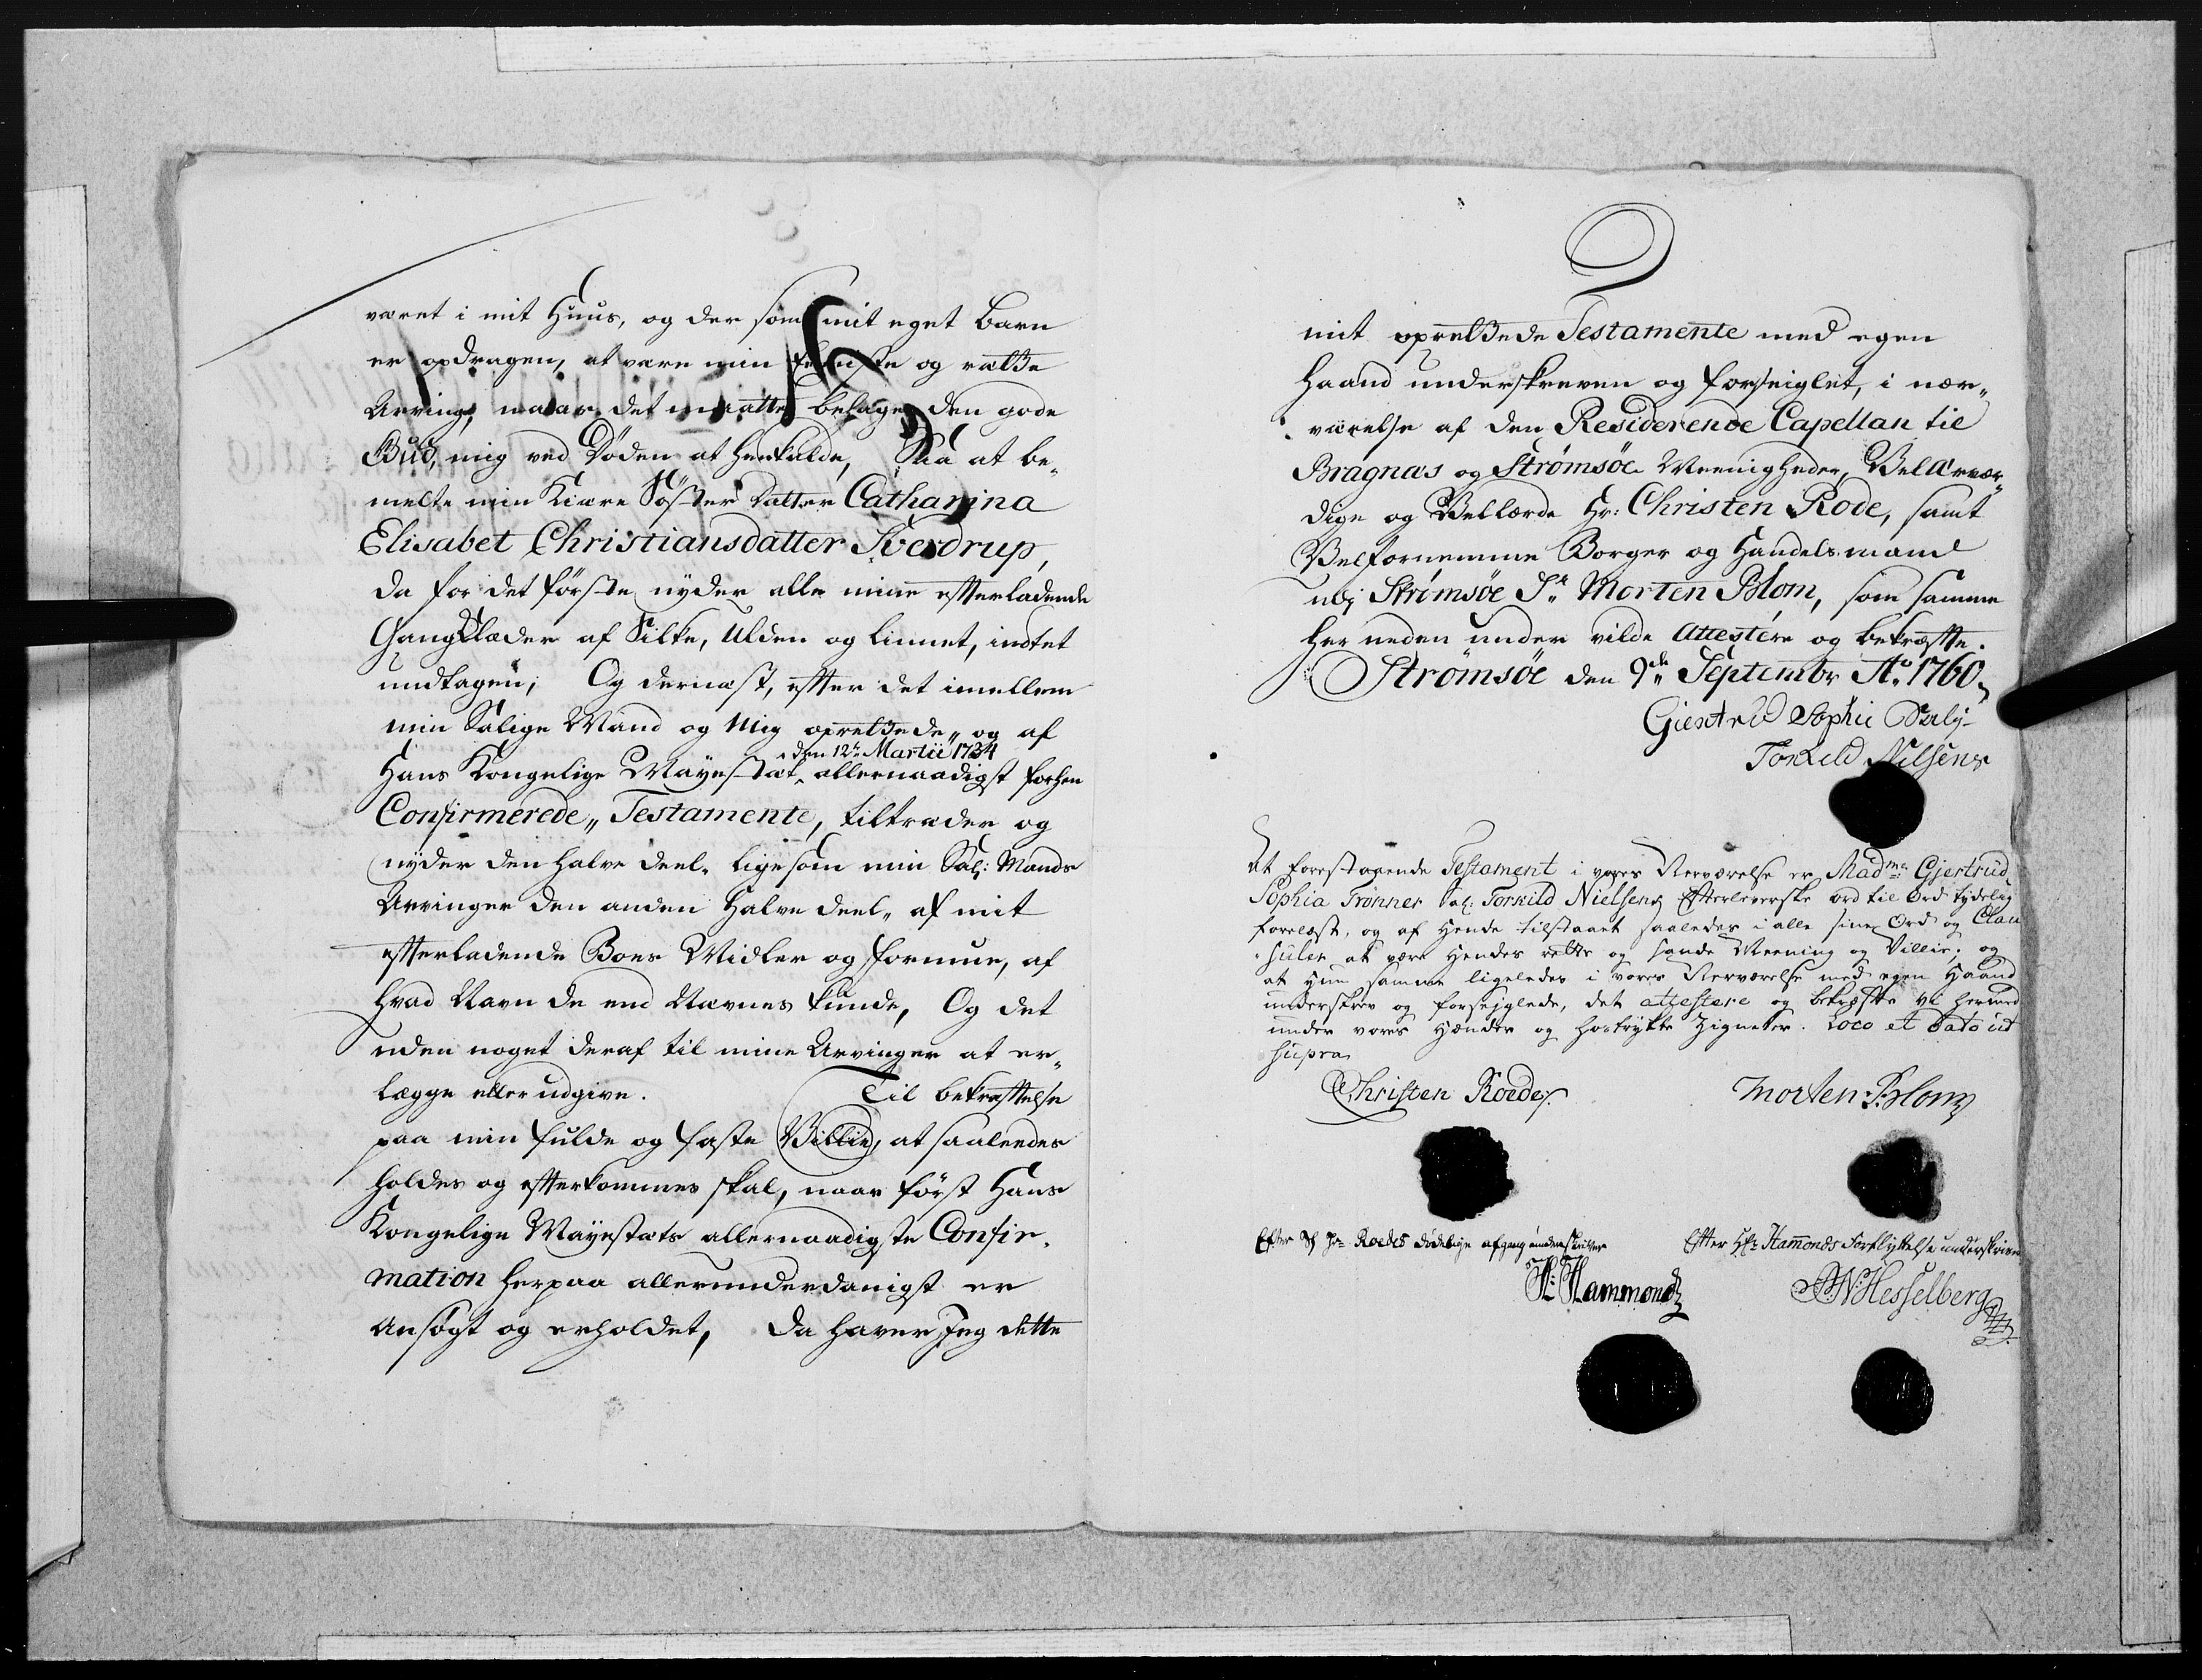 været i mit Huus, og der som mit eget Barn
er opdragen, at være min eeneste og rætte
Arving, naar det maatte behage den gode
Gud, mig ved Døden at henkalde, Saa at be„
melte min Kiære Søster Datter Catharina
Elisabet Christiansdatter Sverdrup,
da for det første nyder alle mine efterladende
Gangklæder af Silke, Ulden og Linnet, indtet
undtagen; Og dernæst, efter det imellem
min Salige Mand og Mig oprettede„ og af
den 12te Martii 1734
Hans Kongelige Mayestæt allernaadigst forhen
Confirmerede„ Testamente, tiltræder og
nyder den halve deel„ ligesom min Sal: Mands
Arvinger den anden halve deel„ af mit
efterladende Boes Midler og formue, af
hvad Navn de end Nævnes kunde, Og det
uden noget deraf til mine Arvinger at er„
lægge eller udgive. Til bekræftelse
paa min fulde og faste Villie, at saaleedes
holdes og efterkommes skal, naar først Hans
Kongelige Mayestæts allernaadigste Confir„
mation herpaa allerunderdanigst er
Ansøgt og erholdet, da haver Jeg dette
mit oprettede Testamente med egen
Haand underskreven og forseiglet, i nær„
værelse af den Residerende Capellan til
Bragnæs og Strømsöe Meenigheder, Velærvær„
dige og Vellærde Hr: Christen Rode, samt
Velfornemme Borger og Handelsmand
udj Strømsöe Sr. Morten Blom, som samme
her neden under vilde Attestére og bekræfte.
Strömsöe den 9de Septembr Ao. 1760.
Giertrud Sophie Sal:
Torkild Nilsens
At forestaaende Testament i vores Nærværelse er Madme: Gjertrud
Sophia Trønner Sal: Torkild Nielsens Efterleverske ord til Ord tydelig
forelæst, og af Hende tilstaaet saaledes i alle sine Ord og Clau
suler at være Hendes rette og sande Meening og Villie; og
at Hun samme ligeledes i vores Nærværelse med egen Haand
underskrev og forseiglede, det attestere og bekræfte vi hermed
under vores Hænder og hostrykte Zigneter. Loco et Dato ut
supra
Christen Roede
Morten Blom
Efter Hr. Roedes dødelige afgang underskriver
H: Hammond
Efter Hr: Hammonds Forflyttelse underskriver
Hesselberg